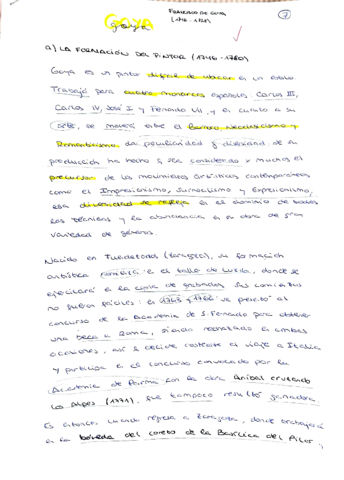 FRANCISCO DE GOYA
GOYA
goya
a) LA FORMACIÓN DEL PINTOR (1746-1780)
Goya es un pintor difícil de ubicar en un estilo.
Trabajó para cuatro monarcas españoles Carlos III,
Carlos IV, José I y Fernando VII, y en cuanto a su
estilo, se movió entre el Barroco, Neoclasicismo y
Romanticismo. La peculiaridad y diversidad de su
producción ha hecho q sea considerado x muchos el
precursor de los movimientos artísticos contemporáneos
como el Impresionismo, Surrealismo y Expresionismo,
esa diversidad se refleja en el dominio de todas
las técnicas y la abundancia en su obra de gran
variedad de géneros.
Nacido en Fuendetodos (Zaragoza), su formación
artística comienza en el taller de Luzán, donde se
ejercitará en la copia de grabados. Sus comienzos
no fueron fáciles: en 1763 y 1766 se presentó al
concurso de la Academia de S. Fernando para obtener
una beca a Roma, siendo rechazado en ambas
ocasiones, así q decide costearse el viaje a Italia
y participa en el concurso convocado por la
Academia de Parma con la obra Aníbal cruzando
los Alpes (1771), que tampoco resultó ganadora.
Es entonces cuando regresa a Zaragoza, donde trabajará
en la bóveda del coreto de la Basílica del Pilar,